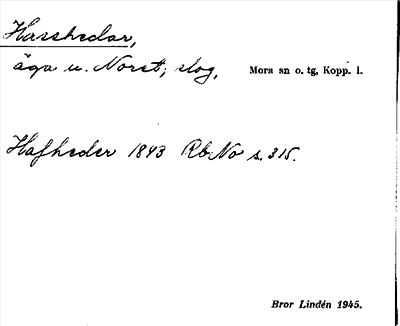 Hassheden,
äga u. Noret; skog, Mora sn o. tg, Kopp. l.
Hafheder 1843 Rb No s. 315.
Bror Lindén 1945.